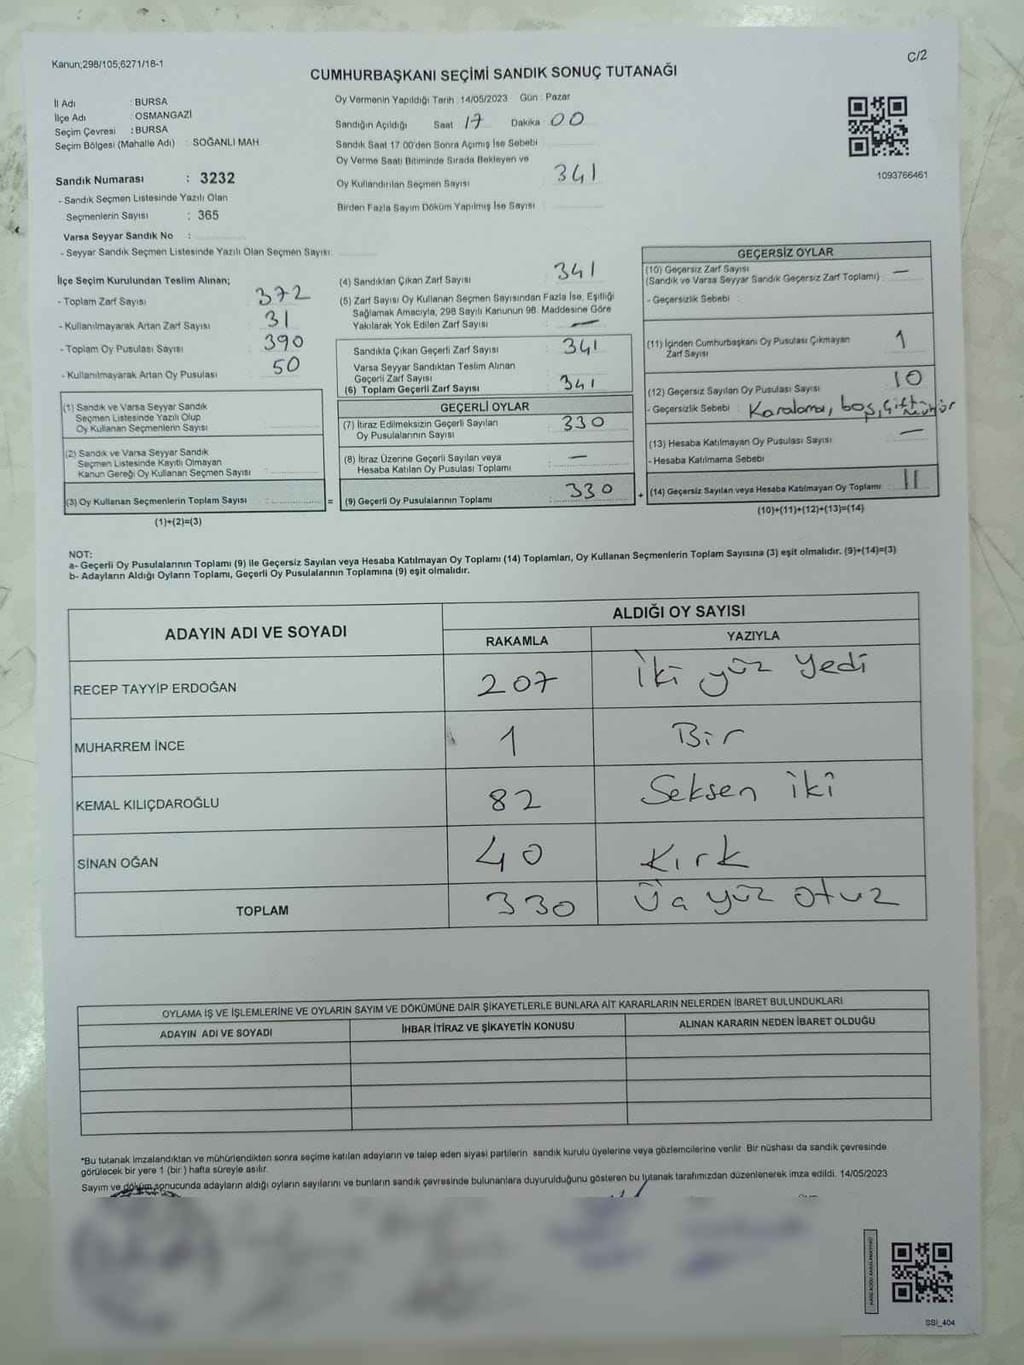 Kanun;298/105;6271/18-1
C/2
CUMHURBAŞKANI SEÇİMİ SANDIK SONUÇ TUTANAĞI
İl Adı : BURSA
İlçe Adı : OSMANGAZİ
Seçim Çevresi : BURSA
Seçim Bölgesi (Mahalle Adı) : SOĞANLI MAH
Sandık Numarası : 3232
- Sandık Seçmen Listesinde Yazılı Olan
Seçmenlerin Sayısı : 365
Varsa Seyyar Sandık No :
- Seyyar Sandık Seçmen Listesinde Yazılı Olan Seçmen Sayısı:
Oy Vermenin Yapıldığı Tarih : 14/05/2023 Gün : Pazar
Sandığın Açıldığı Saat 17 Dakika 00
Sandık Saat 17 00'den Sonra Açımış İse Sebebi
Oy Verme Saati Bitiminde Sırada Bekleyen ve
Oy Kullandırılan Seçmen Sayısı 341
Birden Fazla Sayım Döküm Yapılmış İse Sayısı
1093766461
İlçe Seçim Kurulundan Teslim Alınan;
- Toplam Zarf Sayısı 372
- Kullanılmayarak Artan Zarf Sayısı 31
- Toplam Oy Pusulası Sayısı 390
- Kullanılmayarak Artan Oy Pusulası 50
(1) Sandık ve Varsa Seyyar Sandık
Seçmen Listesinde Yazılı Olup
Oy Kullanan Seçmenlerin Sayısı
(2) Sandık ve Varsa Seyyar Sandık
Seçmen Listesinde Kayıtlı Olmayan
Kanun Gereği Oy Kullanan Seçmen Sayısı
(3) Oy Kullanan Seçmenlerin Toplam Sayısı : =
(1)+(2)=(3)
(4) Sandıktan Çıkan Zarf Sayısı 341
(5) Zarf Sayısı Oy Kullanan Seçmen Sayısından Fazla İse, Eşitliği
Sağlamak Amacıyla, 298 Sayılı Kanunun 98. Maddesine Göre
Yakılarak Yok Edilen Zarf Sayısı —
Sandıkta Çıkan Geçerli Zarf Sayısı 341
Varsa Seyyar Sandıktan Teslim Alınan
Geçerli Zarf Sayısı
(6) Toplam Geçerli Zarf Sayısı 341
GEÇERLİ OYLAR
(7) İtiraz Edilmeksizin Geçerli Sayılan
Oy Pusulalarının Sayısı 330
(8) İtiraz Üzerine Geçerli Sayılan veya
Hesaba Katılan Oy Pusulası Toplamı —
(9) Geçerli Oy Pusulalarının Toplamı : 330 +
GEÇERSİZ OYLAR
(10) Geçersiz Zarf Sayısı
(Sandık ve Varsa Seyyar Sandık Geçersiz Zarf Toplamı) —
- Geçersizlik Sebebi :
(11) İçinden Cumhurbaşkanı Oy Pusulası Çıkmayan
Zarf Sayısı 1
(12) Geçersiz Sayılan Oy Pusulası Sayısı 10
- Geçersizlik Sebebi : Karalama, boş, Çift mühür
(13) Hesaba Katılmayan Oy Pusulası Sayısı —
- Hesaba Katılmama Sebebi
(14) Geçersiz Sayılan veya Hesaba Katılmayan Oy Toplamı 11
(10)+(11)+(12)+(13)=(14)
NOT:
a- Geçerli Oy Pusulalarının Toplamı (9) ile Geçersiz Sayılan veya Hesaba Katılmayan Oy Toplamı (14) Toplamları, Oy Kullanan Seçmenlerin Toplam Sayısına (3) eşit olmalıdır. (9)+(14)=(3)
b- Adayların Aldığı Oyların Toplamı, Geçerli Oy Pusulalarının Toplamına (9) eşit olmalıdır.
ADAYIN ADI VE SOYADI
ALDIĞI OY SAYISI
RAKAMLA YAZIYLA
RECEP TAYYİP ERDOĞAN 207 iki yüz Yedi
MUHARREM İNCE 1 Bir
KEMAL KILIÇDAROĞLU 82 Seksen iki
SİNAN OĞAN 40 Kırk
TOPLAM 330 Üç yüz otuz
OYLAMA İŞ VE İŞLEMLERİNE VE OYLARIN SAYIM VE DÖKÜMÜNE DAİR ŞİKAYETLERLE BUNLARA AİT KARARLARIN NELERDEN İBARET BULUNDUKLARI
ADAYIN ADI VE SOYADI İHBAR İTİRAZ VE ŞİKAYETİN KONUSU ALINAN KARARIN NEDEN İBARET OLDUĞU
*Bu tutanak imzalandıktan ve mühürlendikten sonra seçime katılan adayların ve talep eden siyasi partilerin sandık kurulu üyelerine veya gözlemcilerine verilir. Bir nüshası da sandık çevresinde
görülecek bir yere 1 (bir) hafta süreyle asılır.
Sayım ve döküm sonucunda adayların aldığı oyların sayılarını ve bunların sandık çevresinde bulunanlara duyurulduğunu gösteren bu tutanak tarafımızdan düzenlenerek imza edildi. 14/05/2023
SSI_404